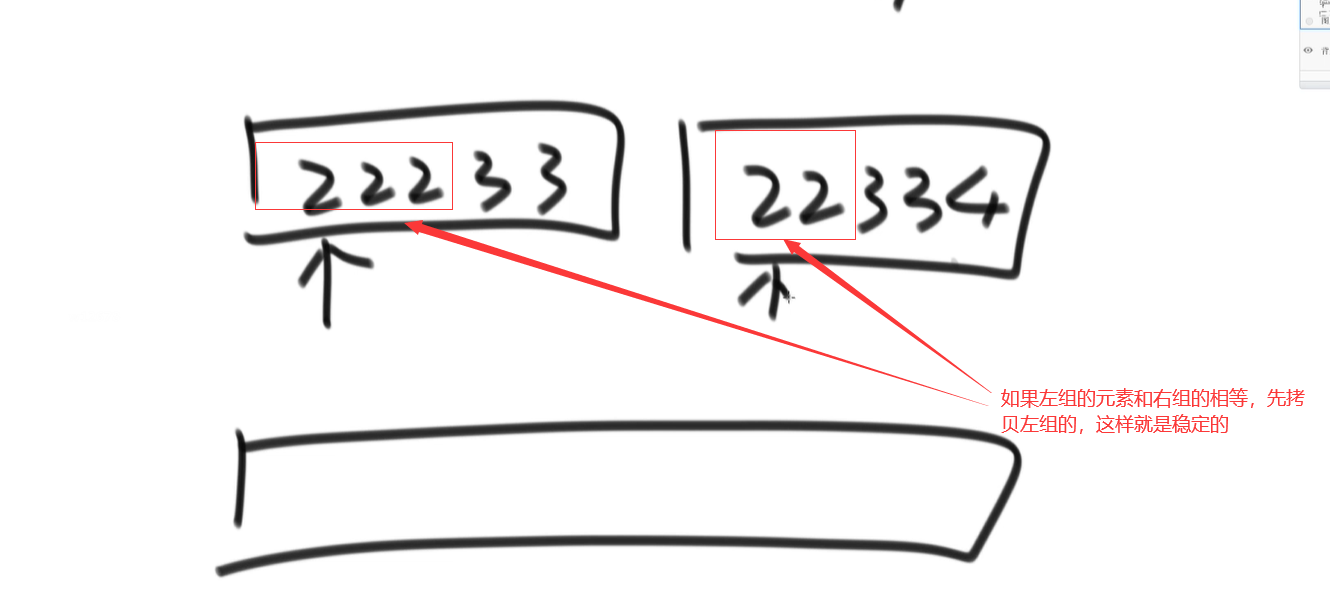 22233
22334
如果左组的元素和右组的相等，先拷
贝左组的，这样就是稳定的